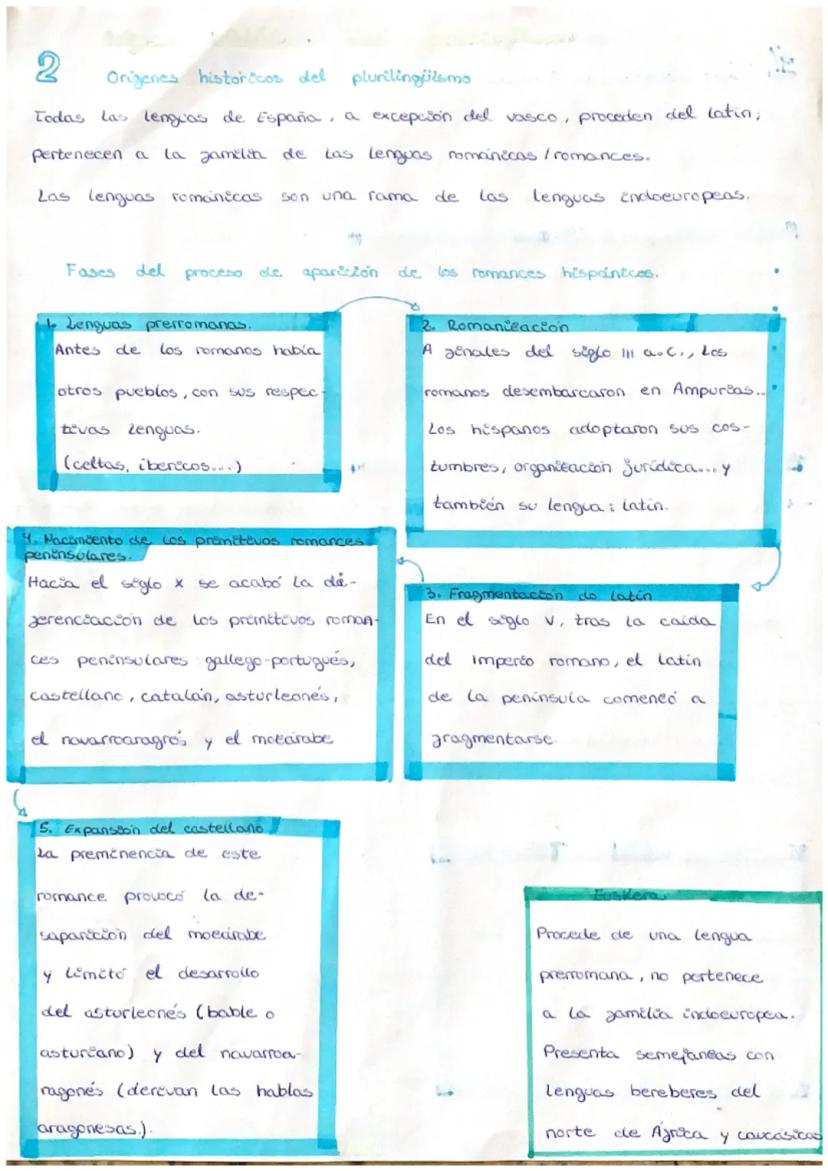 2 Orígenes históricos del plurilingüismo
Todas las lenguas de España, a excepción del vasco, proceden del latín;
pertenecen a la familia de las lenguas románicas / romances.
Las lenguas románicas son una rama de las lenguas indoeuropeas.
Fases del proceso de aparición de los romances hispánicos.
1. Lenguas prerromanas.
Antes de los romanos había
otros pueblos, con sus respec-
tivas lenguas.
(celtas, ibéricos...)
2. Romanización
A finales del siglo III a.C., los
romanos desembarcaron en Ampurias..
Los hispanos adoptaron sus cos-
tumbres, organización jurídica... y
también su lengua: latín.
3. Fragmentación do latín
En el siglo V, tras la caída
del Imperio romano, el latín
de la península comenzó a
fragmentarse
4. Nacimiento de los primitivos romances
peninsulares.
Hacia el siglo X se acabó la di-
ferenciación de los primitivos roman-
ces peninsulares gallego-portugués,
castellano, catalán, asturleonés,
el navarroaragrós y el mozárabe
5. Expansión del castellano
La preminencia de este
romance provocó la de-
saparición del mozárabe
y limitó el desarrollo
del asturleonés (bable o
asturiano) y del navarroa-
ragonés (derivan las hablas
aragonesas.).
Euskera
Procede de una lengua
prerromana, no pertenece
a la familia indoeuropea.
Presenta semejanzas con
lenguas bereberes del
norte de África y caucásicas